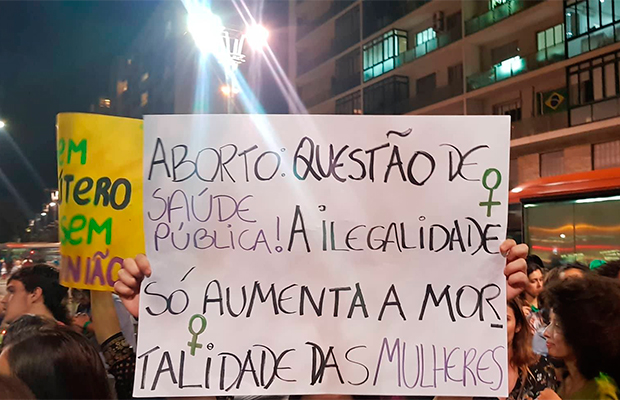 ABORTO: QUESTÃO DE
SAÚDE
PÚBLICA! A ILEGALIDADE
SÓ AUMENTA A MOR-
TALIDADE DAS MULHERES
SEM